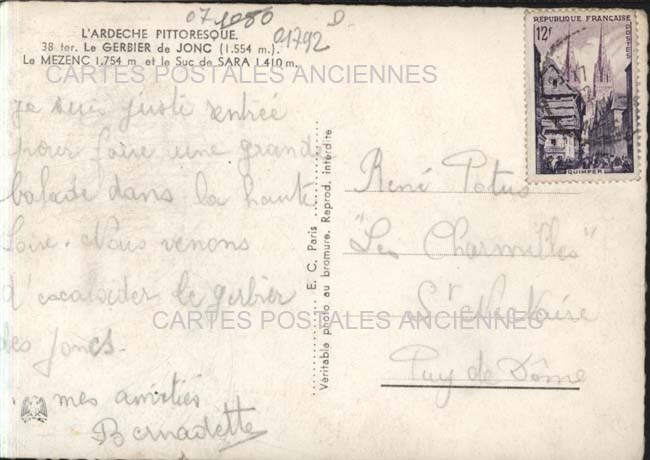 07 1050
01792 D.
L'ARDECHE PITTORESQUE.
38 ter. Le GERBIER de JONC (1.554 m.).
Le MEZENC 1.754 m. et le Suc de SARA 1.410 m.
CARTES POSTALES ANCIENNES
RÉPUBLIQUE FRANÇAISE
12f
POSTES
QUIMPER
je suis juste rentrée
pour faire une grande
balade dans la haute
Loire. Nous venons
d'escalader le gerbier
des joncs.
mes amitiés
Bernadette
E. C. Paris
Véritable photo au bromure. Reprod. interdite
René Potus
"Les Charmilles"
St Nectaire
CARTES POSTALES ANCIENNES
Puy de Dôme